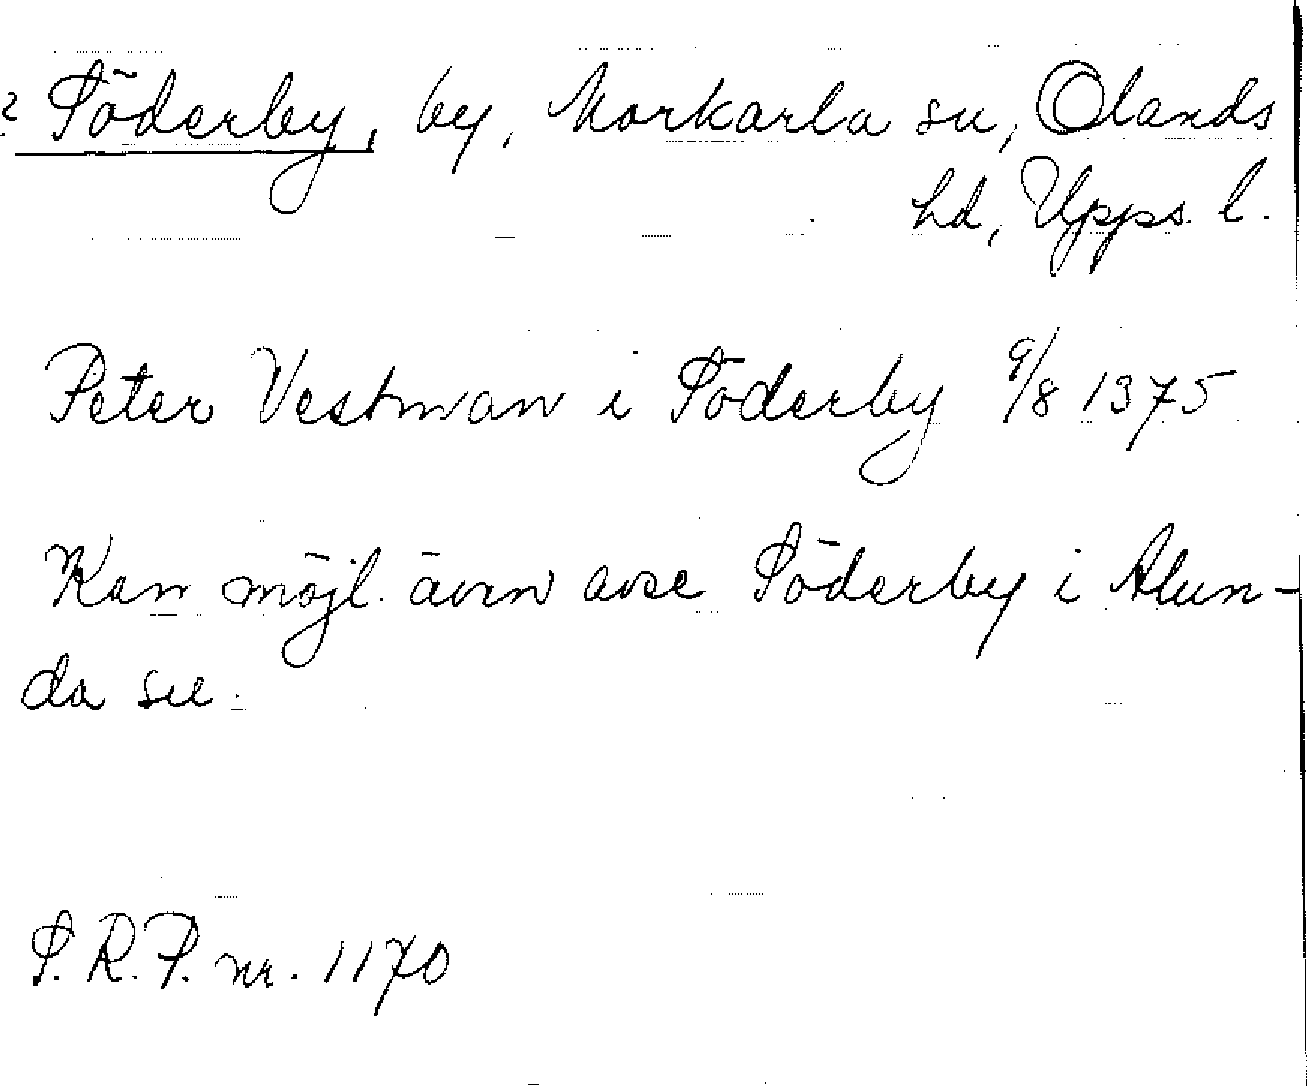 ? Söderby, by, Morkarla sn, Olands
hd, Upps. l.
Peter Vestman i Söderby 9/8 1375
Kan möjl. även avse Söderby i Alun-
da sn.
S. R. P. nr. 1170